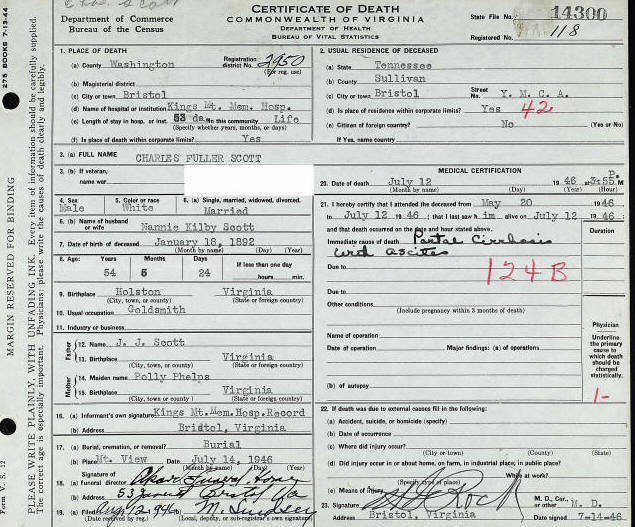 CERTIFICATE OF DEATH
COMMONWEALTH OF VIRGINIA
DEPARTMENT OF HEALTH
BUREAU OF VITAL STATISTICS
Department of Commerce
Bureau of the Census
State File No. 14300
Registered No. 118
275 BOOKS 7-13-44
MARGIN RESERVED FOR BINDING
PLEASE WRITE PLAINLY, WITH UNFADING INK. Every item of information should be carefully supplied.
The correct age is especially important. Physicians: please write the causes of death clearly and legibly.
Form V. S. 12
1. PLACE OF DEATH
(a) County Washington Registration district No. 2950
(For reg. use)
(b) Magisterial district
(c) City or town Bristol
(d) Name of hospital or institution Kings Mt. Mem. Hosp.
(e) Length of stay in hosp. or inst. 53 da. In this community Life
(Specify whether years, months, or days)
(f) Is place of death within corporate limits? Yes
2. USUAL RESIDENCE OF DECEASED
(a) State Tennessee
(b) County Sullivan
(c) City or town Bristol Street No. Y. M. C. A.
(d) Is place of residence within corporate limits? Yes 42
(e) Citizen of foreign country? No (Yes or No)
If Yes, name country
3. (a) FULL NAME CHARLES FULLER SCOTT
3. (b) If veteran, name war
4. Sex Male
5. Color or race White
6. (a) Single, married, widowed, divorced. Married
6. (b) Name of husband or wife Nannie Kilby Scott
7. Date of birth of deceased January 18, 1892
(Month by name) (Day) (Year)
8. Age: Years Months Days If less than one day
54 5 24 hours min.
9. Birthplace Holston Virginia
(City, town, or county) (State or foreign country)
10. Usual occupation Goldsmith
11. Industry or business
Father
12. Name J. J. Scott
13. Birthplace Virginia
(City, town, or county) (State or foreign country)
Mother
14. Maiden name Polly Phelps
15. Birthplace Virginia
(City, town, or county) (State or foreign country)
16. (a) Informant's own signature Kings Mt.Mem.Hosp.Record
(b) Address Bridtol, Virginia
17. (a) Burial, cremation, or removal? Burial
(b) Place Mt. View Date July 14, 1946
(Month by name) (Day) (Year)
18. (a) Signature of funeral director
(b) Address Bristol Va
19. (a) Filed
(Date received by reg.) (Local, deputy, or sub-registrar's own signature)
MEDICAL CERTIFICATION
20. Date of death July 12 1946 at 3:55 P.m.
(Month) (Day) (Year) (Hour)
21. I hereby certify that I attended the deceased from May 20 1946
to July 12 1946; that I last saw him alive on July 12 1946;
and that death occurred on the date and hour stated above.
Duration
Immediate cause of death Portal Cirrhosis
with ascites
Due to
124B
Due to
Other conditions
(Include pregnancy within 3 months of death)
Name of operation
Date of operation Major findings: (a) of operations
(b) of autopsy
Physician
Underline the primary cause to which death should be charged statistically.
1-
22. If death was due to external causes fill in the following:
(a) Accident, suicide, or homicide (specify)
(b) Date of occurrence
(c) Where did injury occur?
(City or town) (County) (State)
(d) Did injury occur in or about home, on farm, in industrial place, in public place?
(Specify type of place) While at work?
(e) Means of injury
23. Signature M. D., Cor., or other M. D.
Address Bristol, Virginia Date signed 7-14-46